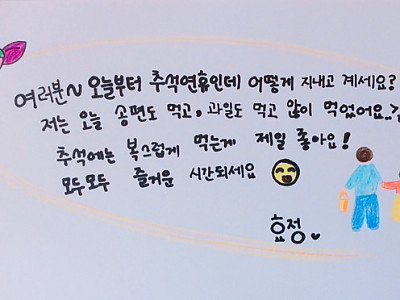 여러분~ 오늘부터 추석연휴인데 어떻게 지내고 계세요?
저는 오늘 송편도 먹고, 과일도 먹고 많이 먹었어요..?
추석에는 복스럽게 먹는게 제일 좋아요!
모두모두 즐거운 시간되세요
효정